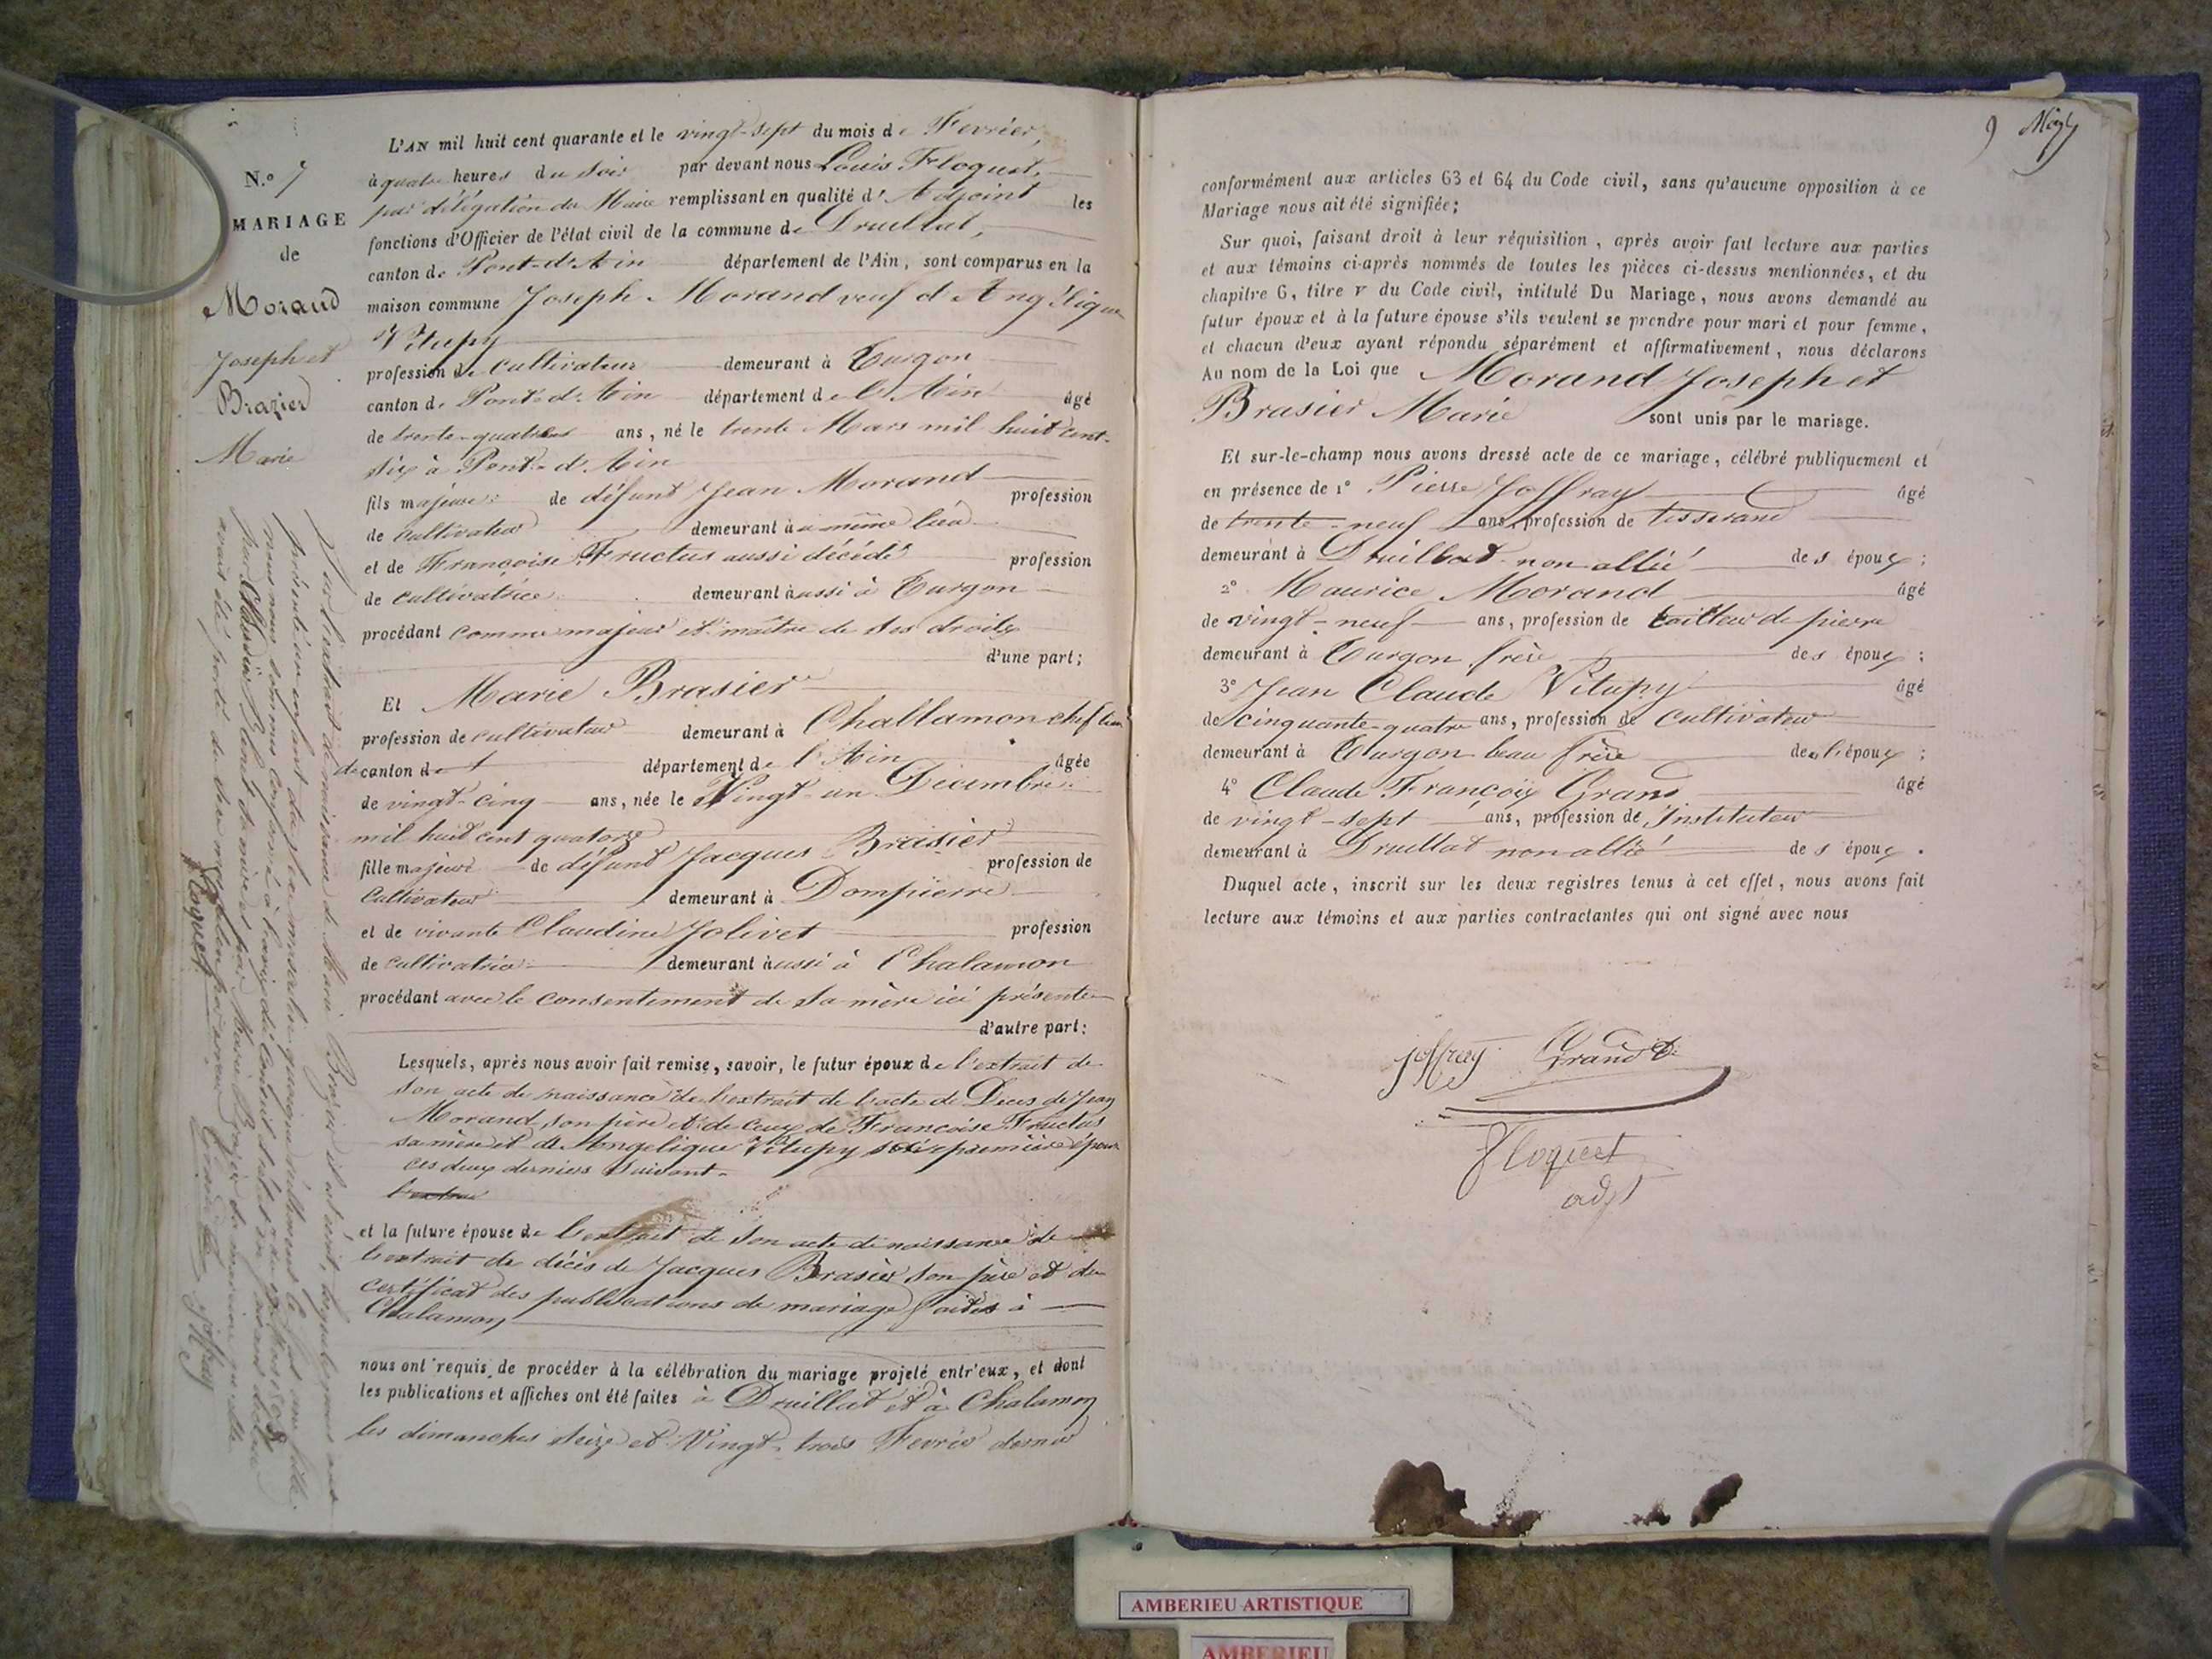 N.º 7
MARIAGE
de
Morand
Joseph et
Brazier
Marie
L'AN mil huit cent quarante et le vingt-sept du mois de Fevrier,
à quatre heures du soir par devant nous Louis Floquet,
par délégation du Maire remplissant en qualité d'Adjoint les
fonctions d'Officier de l'état civil de la commune de Druillat,
canton de Pont-d'Ain département de l'Ain, sont comparus en la
maison commune Joseph Morand veuf d'Angélique
Vitupy
profession de Cultivateur demeurant à Turgon
canton de Pont-d'Ain département de l'Ain âgé
de trente-quatre ans, né le trente Mars mil huit cent-
six à Pont-d'Ain
fils majeur de défunt Jean Morand profession
de Cultivateur demeurant au même lieu
et de Françoise Fructus aussi décédé profession
de Cultivatrice demeurant aussi à Turgon
procédant comme majeur et maître de ses droits
d'une part;
Et Marie Brasier
profession de cultivateur demeurant à Challamon chef lieu
de canton de département de l'Ain âgée
de vingt-cinq ans, née le Vingt-un Décembre
mil huit cent quatorze
fille majeure de défunt Jacques Brasier profession de
Cultivateur demeurant à Dompierre
et de vivante Claudine Jolivet profession
de Cultivatrice demeurant aussi à Chalamon
procédant avec le consentement de sa mère ici présente
d'autre part:
Lesquels, après nous avoir fait remise, savoir, le futur époux de l'extrait de
son acte de naissance de l'extrait de l'acte de Décès de Jean
Morand, son père et de ceux de Françoise Fructus
sa mère et de Angelique Vitupy première épouse
ces deux derniers suivant
et la future épouse de l'extrait de son acte de naissance de
l'extrait de décès de Jacques Brasier son père et du
certificat des publications de mariage faites à
Chalamon
nous ont requis de procéder à la célébration du mariage projeté entr'eux, et dont
les publications et affiches ont été faites à Druillat et à Chalamon
les dimanches seize et Vingt-trois Fevrier dernier
Sur l'extrait de naissance de Marie Brasier
Floquet Grand Joffray
9
conformément aux articles 63 et 64 du Code civil, sans qu'aucune opposition à ce
Mariage nous ait été signifiée;
Sur quoi, faisant droit à leur réquisition, après avoir fait lecture aux parties
et aux témoins ci-après nommés de toutes les pièces ci-dessus mentionnées, et du
chapitre 6, titre v du Code civil, intitulé Du Mariage, nous avons demandé au
futur époux et à la future épouse s'ils veulent se prendre pour mari et pour femme,
et chacun d'eux ayant répondu séparément et affirmativement, nous déclarons
Au nom de la Loi que Morand Joseph et
Brasier Marie sont unis par le mariage.
Et sur-le-champ nous avons dressé acte de ce mariage, célébré publiquement et
en présence de 1º Pierre Joffray âgé
de trente-neuf ans, profession de tisserand
demeurant à Druillat non allié des époux;
2º Maurice Morand âgé
de vingt-neuf ans, profession de tailleur de pierre
demeurant à Turgon frère des époux;
3º Jean Claude Vitupy âgé
de cinquante-quatre ans, profession de Cultivateur
demeurant à Turgon beau frère de l'époux;
4º Claude François Grand âgé
de vingt-sept ans, profession de Instituteur
demeurant à Druillat non allié des époux.
Duquel acte, inscrit sur les deux registres tenus à cet effet, nous avons fait
lecture aux témoins et aux parties contractantes qui ont signé avec nous
Joffray Grand
Floquet
adjt
AMBERIEU ARTISTIQUE
AMBERIEU